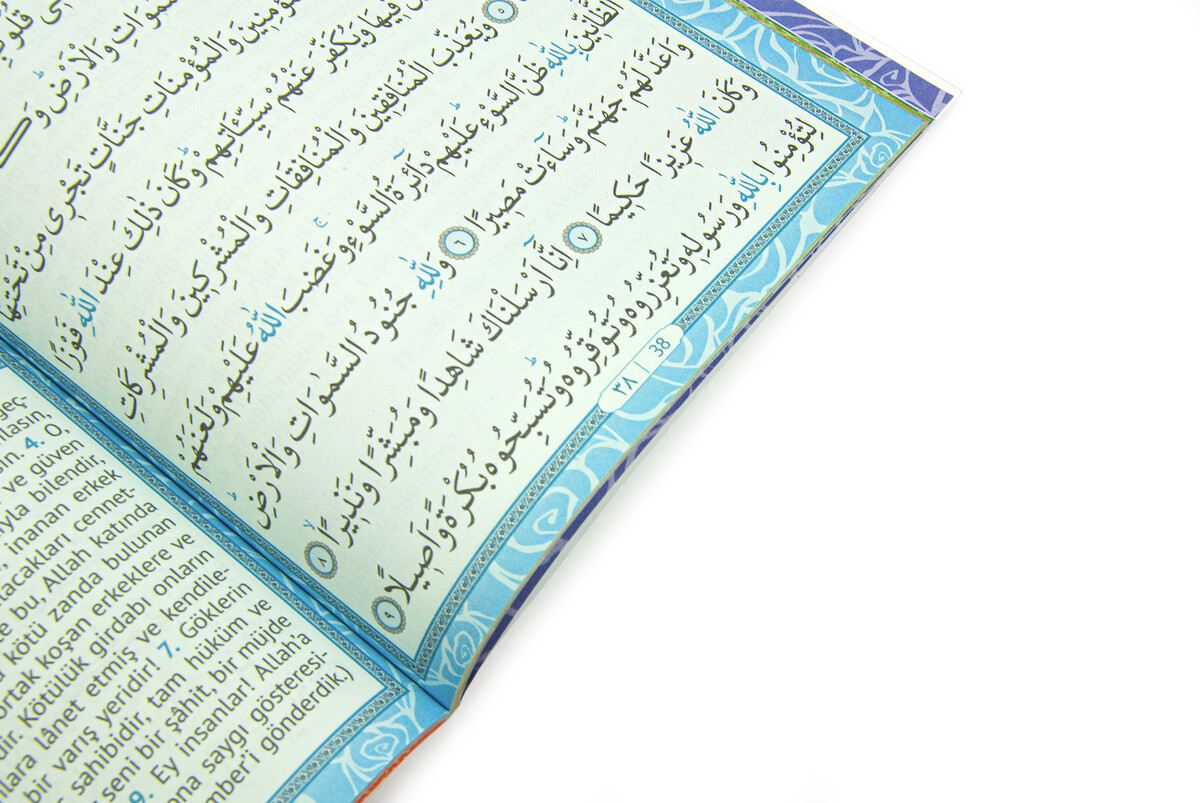 السَّمٰوَاتِ وَالْاَرْضِ وَ
وَالْمُؤْمِنَاتِ جَنَّاتٍ تَجْرِى مِنْ تَحْتِهَا
فِيهَا وَيُكَفِّرَ عَنْهُمْ سَيِّـَٔاتِهِمْ وَكَانَ ذٰلِكَ عِنْدَ اللّٰهِ فَوْزًا
٥ وَيُعَذِّبَ الْمُنَافِقِينَ وَالْمُنَافِقَاتِ وَالْمُشْرِكِينَ وَالْمُشْرِكَاتِ
الظَّٓانِّينَ بِاللّٰهِ ظَنَّ السَّوْءِ عَلَيْهِمْ دَٓائِرَةُ السَّوْءِ وَغَضِبَ اللّٰهُ عَلَيْهِمْ وَلَعَنَهُمْ
وَاَعَدَّ لَهُمْ جَهَنَّمَ وَسَٓاءَتْ مَصِيرًا ٦ وَلِلّٰهِ جُنُودُ السَّمٰوَاتِ وَالْاَرْضِ
وَكَانَ اللّٰهُ عَزِيزًا حَكِيمًا ٧ اِنَّٓا اَرْسَلْنَاكَ شَاهِدًا وَمُبَشِّرًا وَنَذِيرًا ٨
لِتُؤْمِنُوا بِاللّٰهِ وَرَسُولِهِ وَتُعَزِّرُوهُ وَتُوَقِّرُوهُ وَتُسَبِّحُوهُ بُكْرَةً وَاَصِيلًا ٩
٣٨ | 38
geç-
4. O,
ve güven
bilendir,
inanan erkek
cennet-
bu, Allah katında
kötü zanda bulunan
ortak koşan erkeklere ve
Kötülük girdabı onların
lânet etmiş ve kendile-
bir varış yeridir! 7. Göklerin
sahibidir, tam hüküm ve
seni bir şâhit, bir müjde
9. Ey insanlar! Allah'a
ona saygı gösteresi-
gönderdik.)